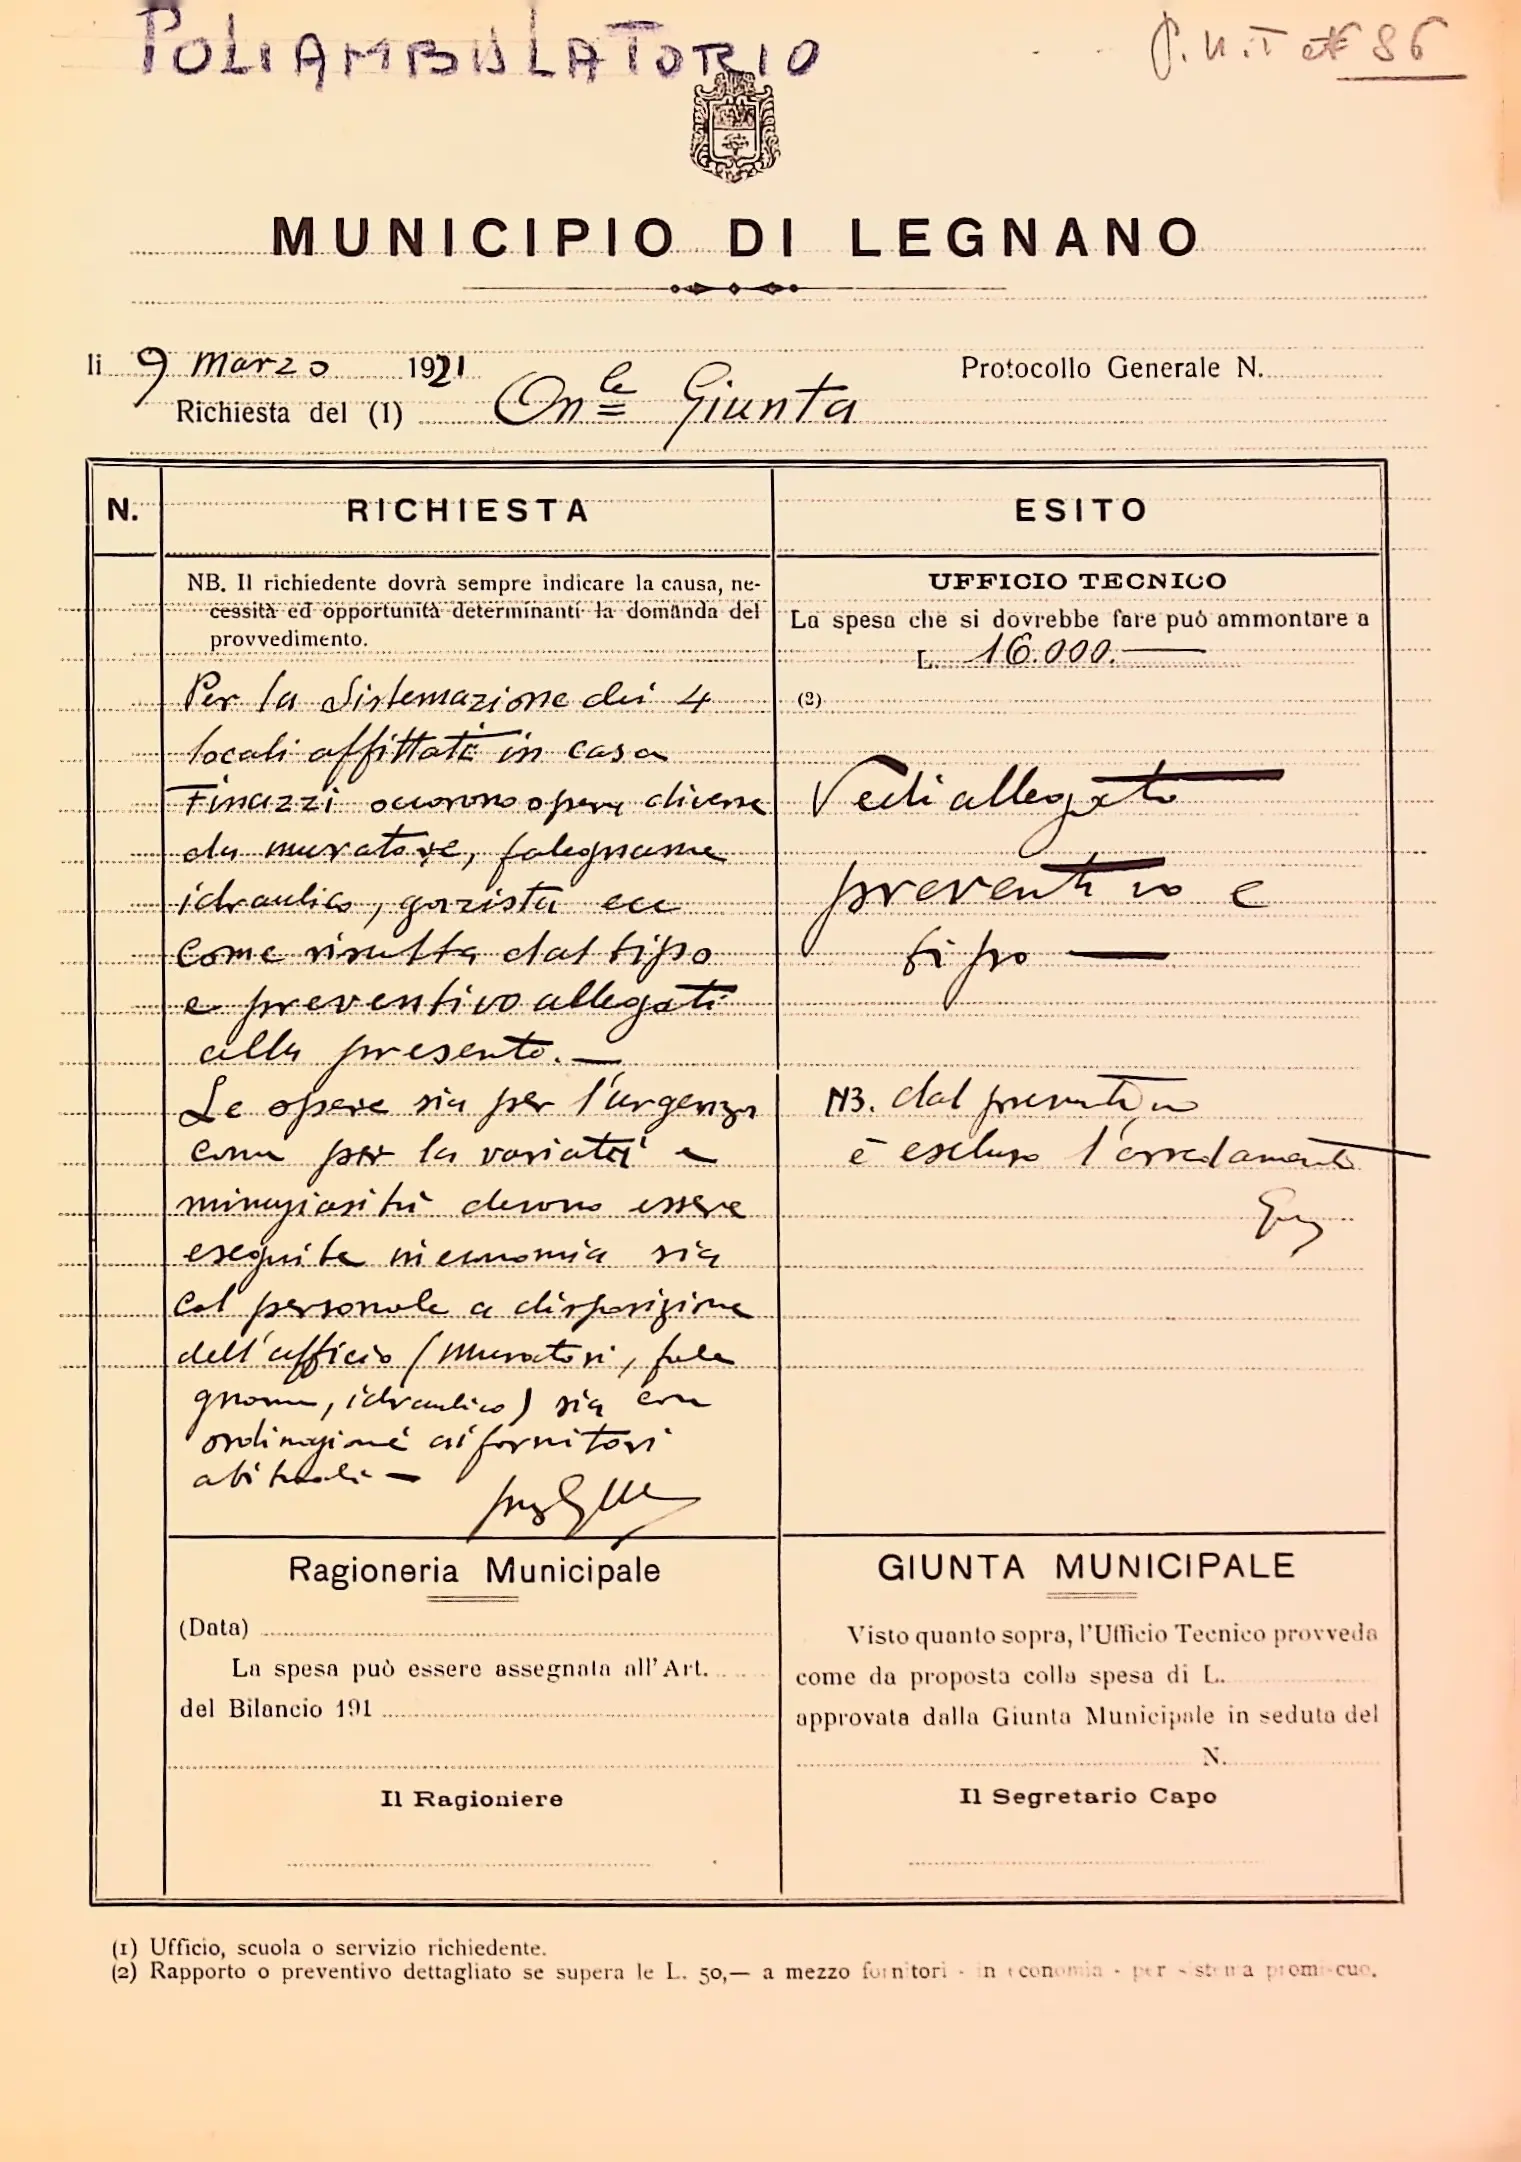 POLIAMBULATORIO
86
MUNICIPIO DI LEGNANO
li 9 Marzo 1921
Protocollo Generale N.
Richiesta del (1) On.le Giunta
N.
RICHIESTA
ESITO
NB. Il richiedente dovrà sempre indicare la causa, ne-
cessità ed opportunità determinanti la domanda del
provvedimento.
Per la Sistemazione dei 4
locali affittati in casa
Finazzi occorrono opere diverse
da muratore, falegname
idraulico, gazista ecc
come risulta dal tipo
e preventivo allegati
alla presente. —
Le opere sia per l'urgenza
come per la varietà e
minuziosità devono essere
eseguite in economia sia
col personale a disposizione
dell'ufficio (muratori, fale
gname, idraulico) sia con
ordinazione ai fornitori
abituali —
UFFICIO TECNICO
La spesa che si dovrebbe fare può ammontare a
L. 16.000.—
(2)
Vedi allegato
preventivo e
tipo —
NB. dal preventivo
è escluso l'arredamento
Ragioneria Municipale
(Data)
La spesa può essere assegnata all'Art.
del Bilancio 191
Il Ragioniere
GIUNTA MUNICIPALE
Visto quanto sopra, l'Ufficio Tecnico provveda
come da proposta colla spesa di L.
approvata dalla Giunta Municipale in seduta del
N.
Il Segretario Capo
(1) Ufficio, scuola o servizio richiedente.
(2) Rapporto o preventivo dettagliato se supera le L. 50,— a mezzo fornitori - in economia - per sistema promiscuo.